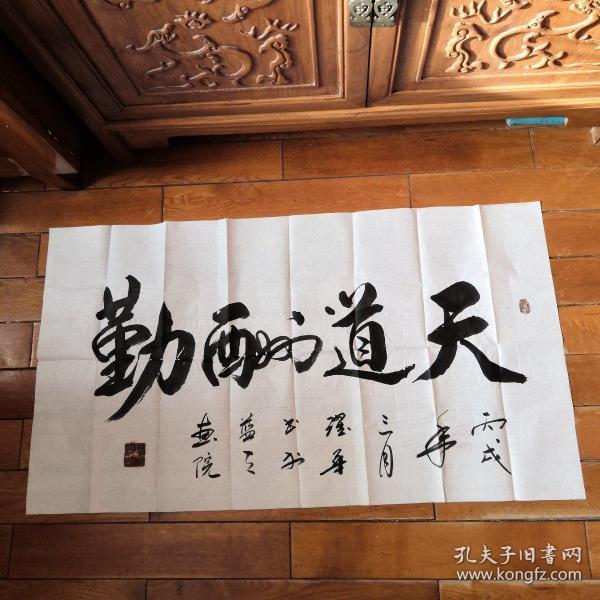 天道酬勤
丙戌
年
三月
耀華
书于
蓝天
画院
孔夫子旧書网
www.kongfz.com